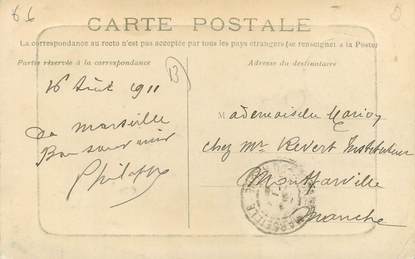 66
CARTE POSTALE
La correspondance au recto n'est pas acceptée par tous les pays étrangers (se renseigner à la Poste)
Partie réservée à la correspondance
Adresse du destinataire
B
16 Août 1911
De Marseille
Bon souvenir
Philippe
Mademoiselle
chez Mr Revert Instituteur
Montfarville
Manche
MARSEILLE